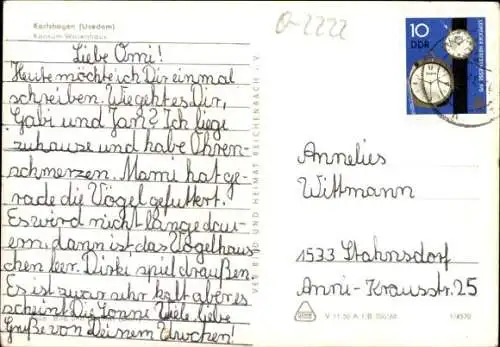 Karlshagen (Usedom)
Konsum-Warenhaus
0-2222
Liebe Omi!
Heute möchte ich Dir einmal
schreiben. Wie geht es Dir,
Gabi und Jan? Ich liege
zuhause und habe Ohren-
schmerzen. Mami hat ge-
rade die Vögel gefüttert.
Es wird nicht lange dau-
ern, dann ist das Vogelhaus-
chen leer. Dirk spielt draußen.
Es ist zwar sehr kalt aber es
scheint die Sonne. Viele liebe
Grüße von Deinem
VEB BILD UND HEIMAT REICHENBACH i. V.
10
DDR
LEIPZIGER HERBSTMESSE 1970
Annelies
Wittmann
1533 Stahnsdorf
Anni-Krausstr. 25